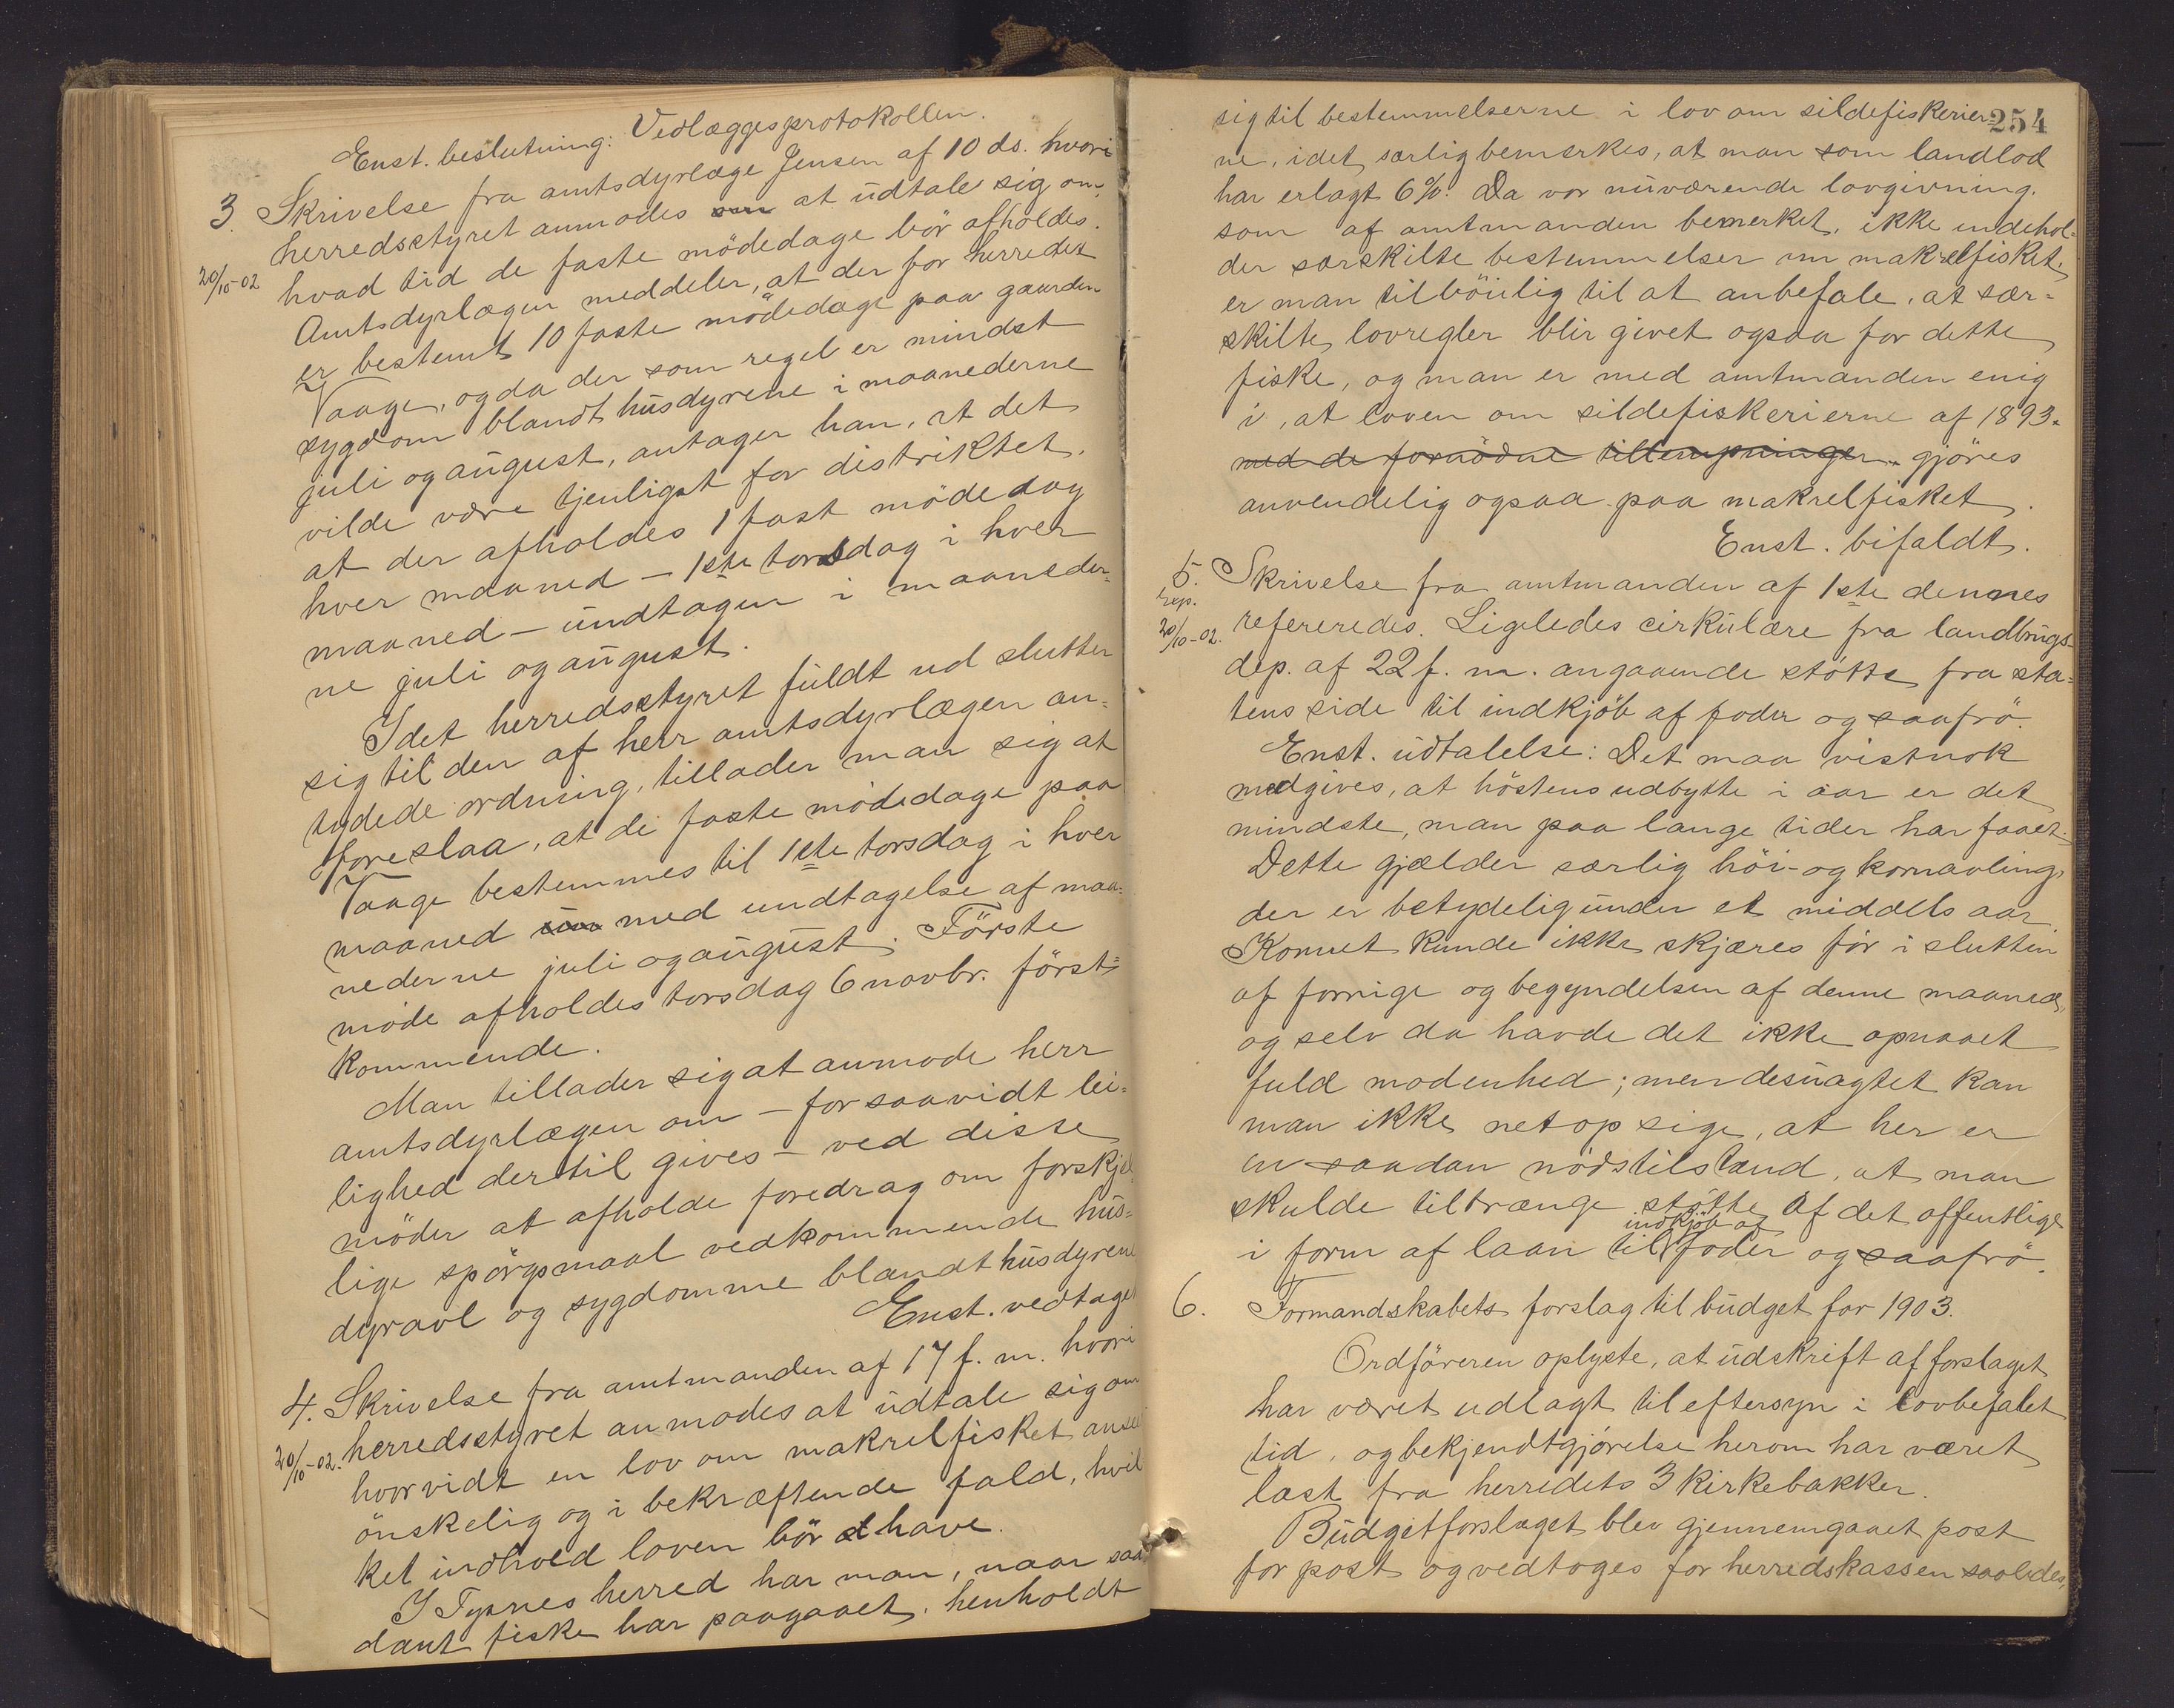 Enst. beslutning: Vedlægges protokollen.
3. Skrivelse fra amtsdyrlæge Jensen af 10 ds. hvori
herredsstyret anmodes om at udtale sig om,
20/10-02 hvad tid de faste mödedage bör afholdes.
Amtsdyrlægen meddeler, at der for herredet
er bestemt 10 faste mödedage paa gaarden
Vaage, og da der som regel er mindst
sygdom blandt husdyrene i maanederne
juli og august, antager han, at det
vilde være tjenligst for distriktet,
at der afholdes 1 fast mödedag
hver maaned – 1ste torsdag i hver
maaned – undtagen i maaneder-
ne juli og august.
Idet herredsstyret fuldt ud slutter
sig til den af herr amtsdyrlægen an-
tydede ordning, tillader man sig at
foreslaa, at de faste mödedage paa
Vaage bestemmes til 1ste torsdag i hver
maaned un med undtagelse af maa-
nederne juli og august. Förste
möde afholdes torsdag 6 novbr. först-
kommende.
Man tillader sig at anmode herr
amtsdyrlægen om – forsaavidt lei-
lighed dertil gives – ved disse
möder at afholde foredrag om forskjel-
lige spörgsmaal vedkommende hus-
dyravl og sygdomme blandt husdyrene
Enst. vedtaget
4. Skrivelse fra amtmanden af 17 f. m. hvori
herredsstyret anmodes at udtale sig om
20/10-02. hvorvidt en lov om makrelfisket ansees
önskelig og i bekræftende fald, hvil
ket indhold loven bör at have.
I Tysnes herred har man, naar saa
dant fiske har paagaaet, henholdt
254
sig til bestemmelserne i lov om sildefiskerier-
ne, idet særlig bemærkes, at man som landlod
har erlagt 6%. Da vor nuværende lovgivning,
som af amtmanden bemerket, ikke indehol-
der særskilte bestemmelser om makrelfisket,
er man tilböielig til at anbefale, at sær-
skilte lovregler blir givet ogsaa for dette
fiske, og man er med amtmanden enig
i, at loven om sildefiskerierne af 1893.
med de fornödne tillempninger gjöres
anvendelig ogsaa paa makrelfisket.
Enst. bifaldt.
5. Skrivelse fra amtmanden af 1ste dennes
exp.
20/10-02. refereredes. Ligeledes cirkulære fra landbrugs-
dep. af 22 f. m. angaaende stötte fra sta-
tens side til indkjöb af foder og saafrö.
Enst. udtalelse: Det maa vistnok
medgives, at höstens udbytte i aar er det
mindste, man paa lange tider har faaet.
Dette gjælder særlig höi- og kornavling,
der er betydelig under et middels aar
Kornet kunde ikke skjæres för i slutten
af forrige og begyndelsen af denne maaned,
og selv da havde det ikke opnaaet
fuld modenhed; men desuagtet kan
man ikke netop sige, at her er
en saadan nödstilstand, at man
skulde tiltrænge stötte af det offentlige
indkjöb af
i form af laan til foder og saafrö.
6. Formandskabets forslag til budget for 1903.
Ordföreren oplyste, at udskrift af forslaget
har været udlagt til eftersyn i lovbefalet
tid, og bekjendtgjörelse herom har været
læst fra herredets 3 kirkebakker.
Budgetforslaget blev gjennemgaaet post
for post og vedtoges for herredskassen saaledes,